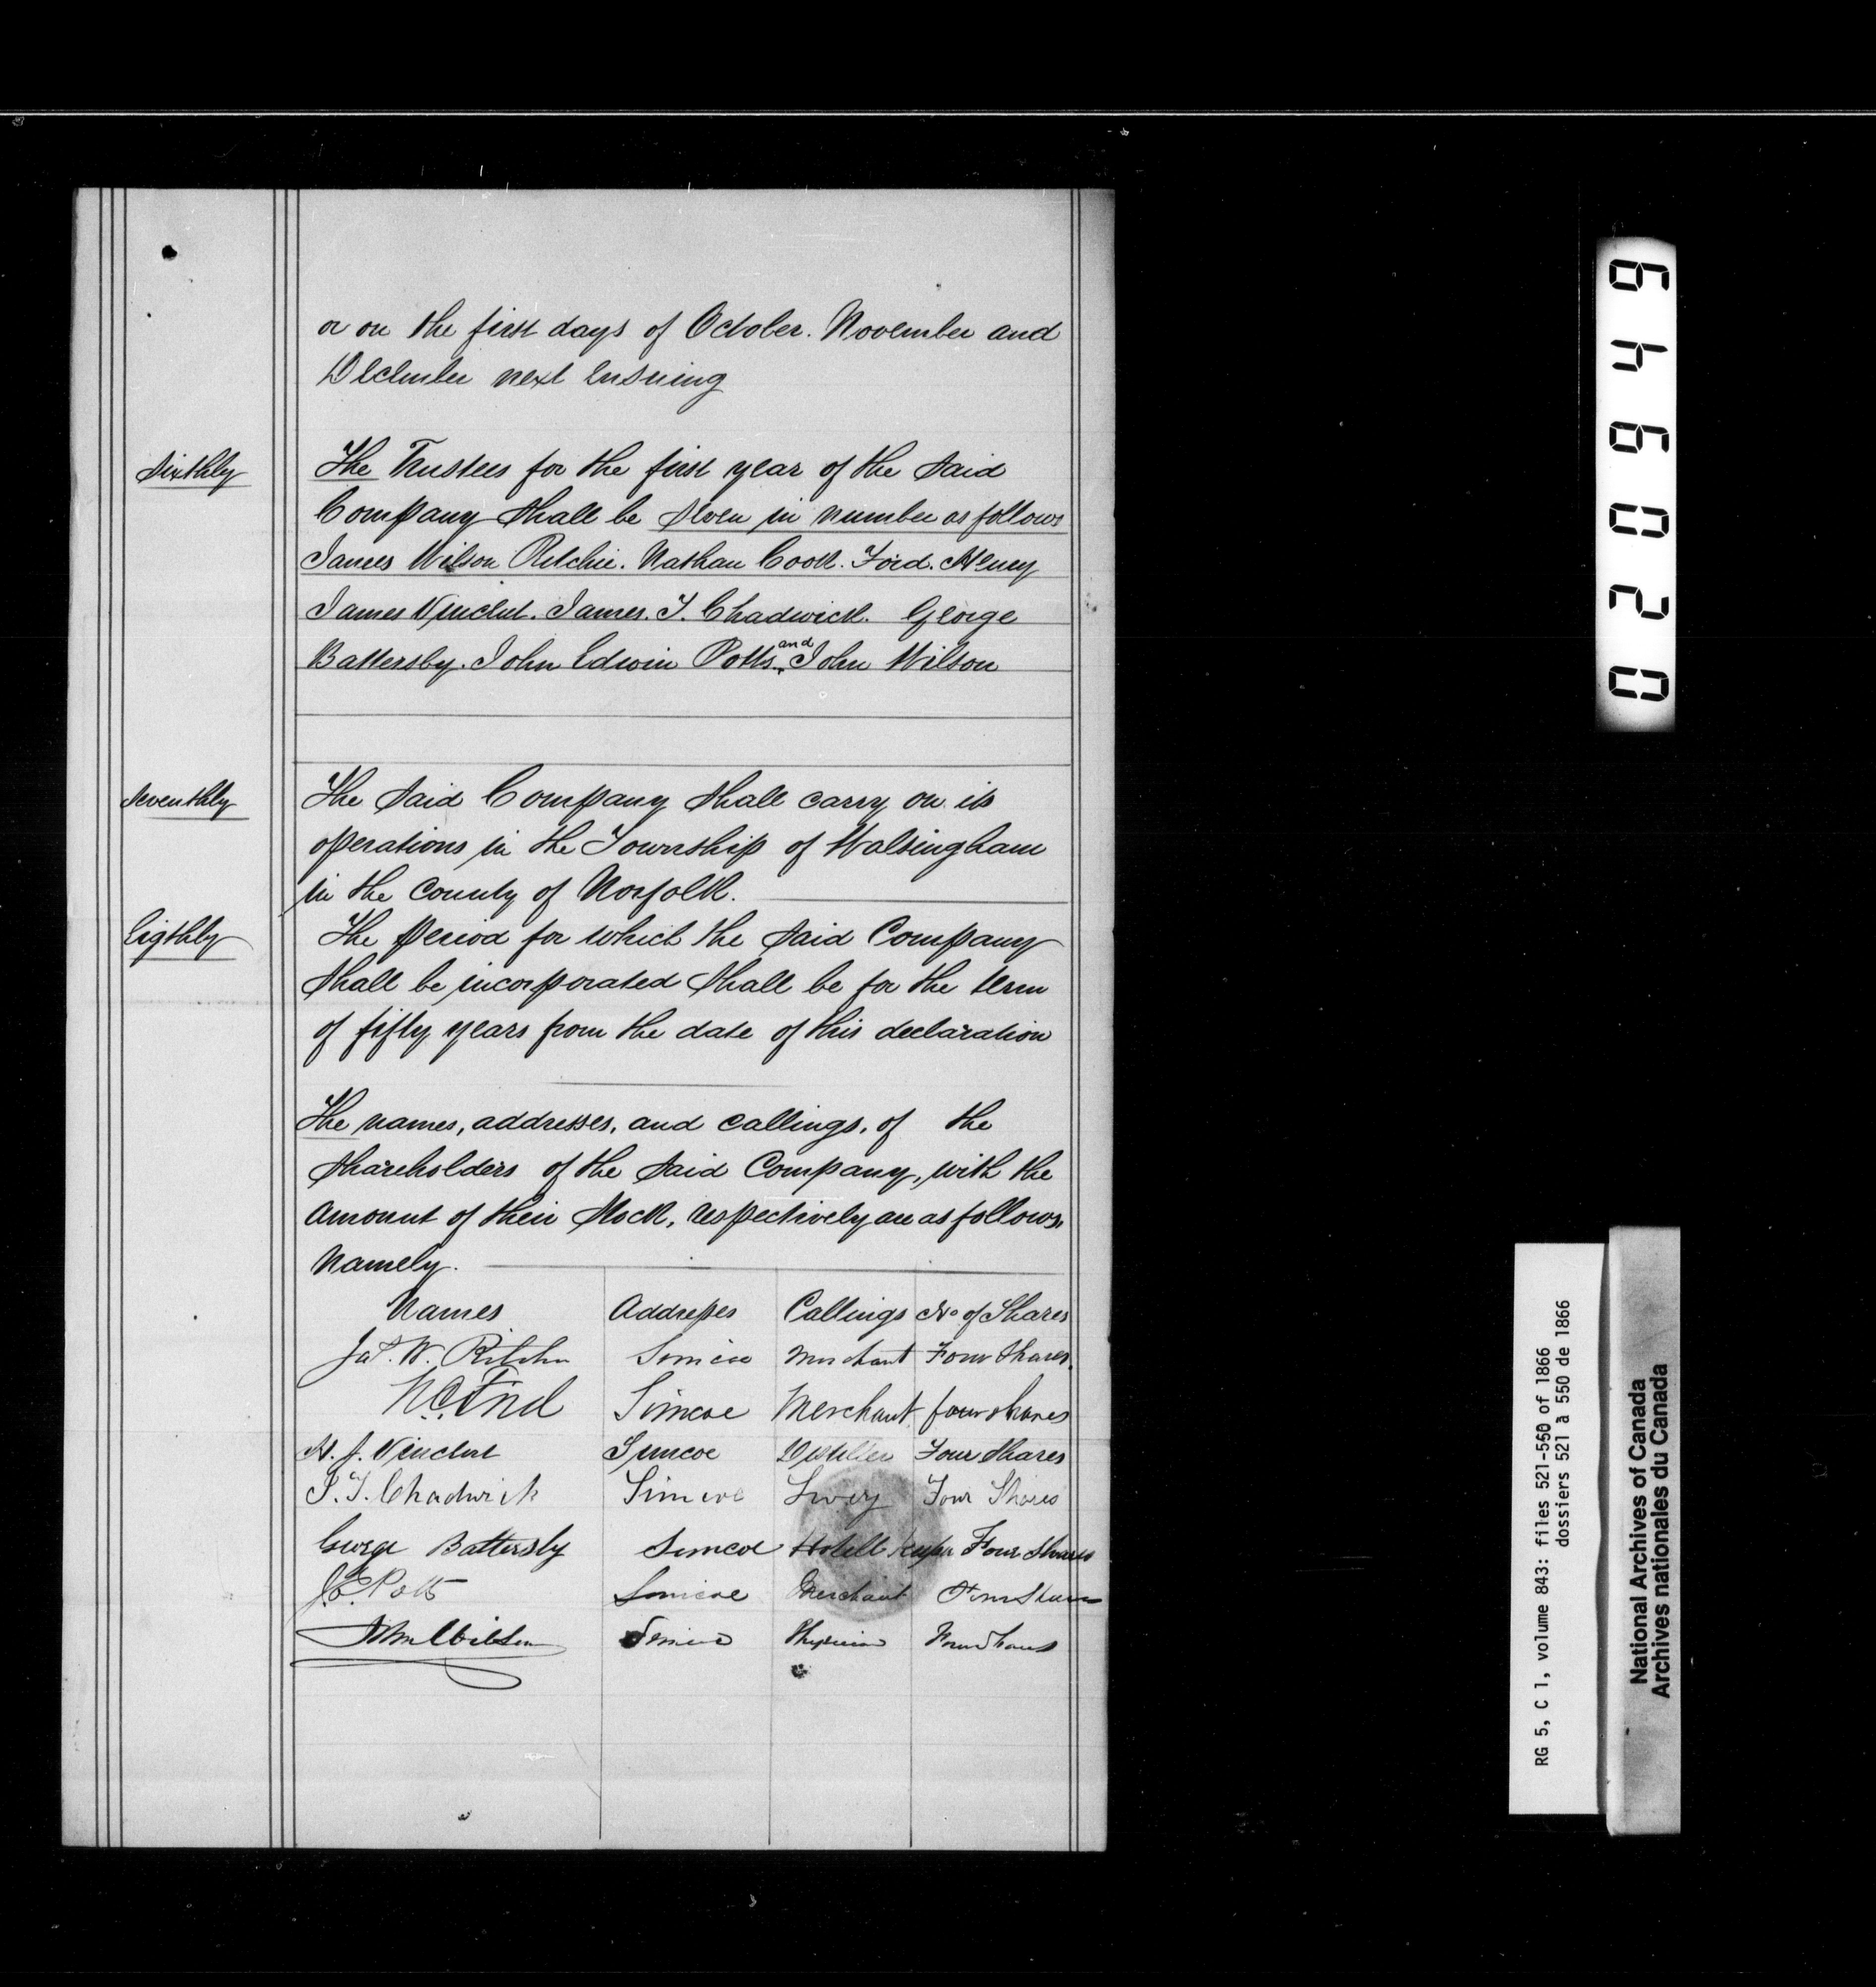 or on the first days of October. November and
December next ensuing
Sixthly
The Trustees for the first year of the said
Company shall be seven in number as follows
James Wilson Ritchie. Nathan Cook. Ford. Henry
James Vincent. James. T. Chadwick. George
Battersby. John Edwin Potts. and John Wilson
Seventhly
The said Company shall carry on its
operations in the Township of Walsingham
in the County of Norfolk.
Eigthly
The period for which the said Company
shall be incorporated shall be for the term
of fifty years from the date of this declaration
The names, addresses, and callings, of the
shareholders of the said Company, with the
amount of their stock, respectively are as follows,
Namely.
Names Addresses Callings No of Shares
Jas. W. Ritchie Simcoe Merchant Four Shares.
N.C. Ford Simcoe Merchant four shares
H. J. Vincent Simcoe Distiller Four Shares
J. T. Chadwick Simcoe Livery Four Shares
George Battersby Simcoe Hotell keeper Four Shares
J. E. Potts Simcoe Merchant Four Shares
John Wilson Simcoe Physician Four Shares
020649
RG 5, C 1, volume 843: files 521-550 of 1866
dossiers 521 à 550 de 1866
National Archives of Canada
Archives nationales du Canada